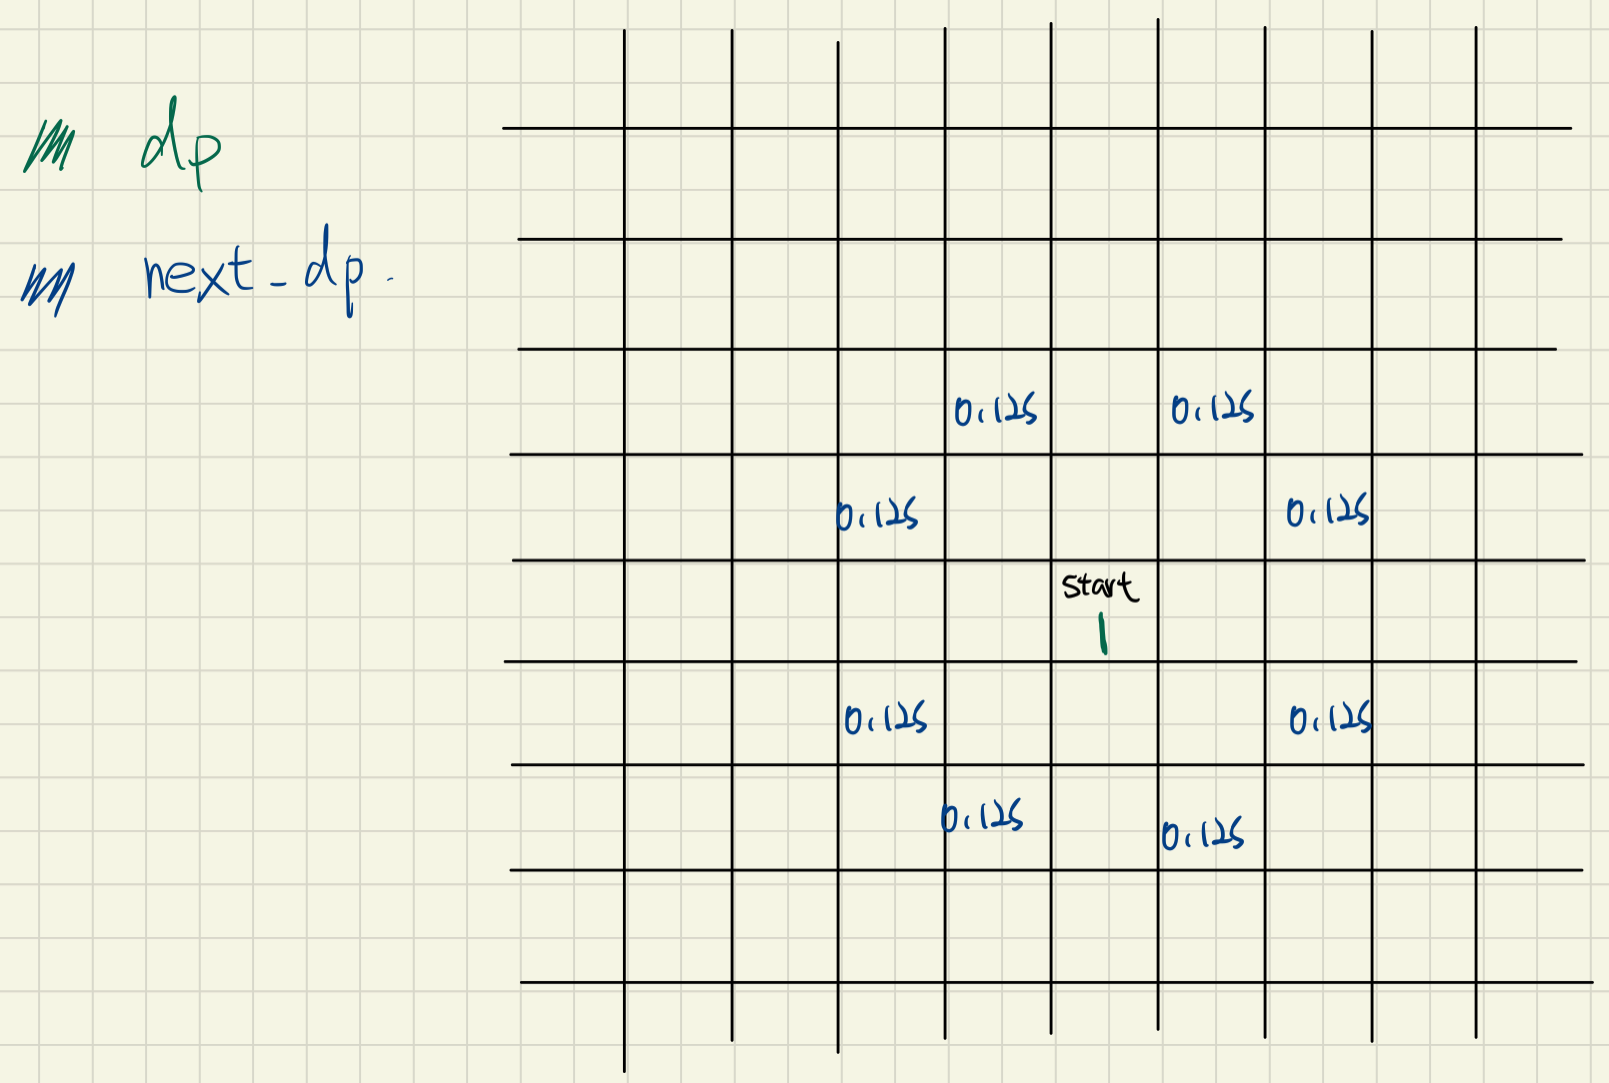 dp
next_dp.
0.125 0.125
0.125 0.125
start
1
0.125 0.125
0.125 0.125